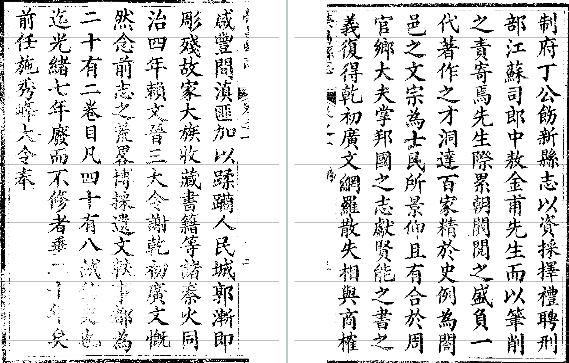 咸豐間滇匪加以蹂躪人民城郭漸即
彫殘故家大族收藏書籍等諸秦火同
治四年賴文晉三大令謝乾初廣文慨
然念前志之荒畧博採遺文獻事都為
二十有二卷目凡四十有八誠也
迄光緒七年廢而不修者垂二十年矣
前任施秀峰大令奉
制府丁公飭新縣志以資採擇禮聘刑
部江蘇司郎中敖金甫先生而以筆削
之責寄焉先生際累朝閥閱之盛負一
代著作之才洞達百家精於史例為闔
邑之文宗為士民所景仰且有合於周
官鄉大夫掌邦國之志獻賢能之書之
義復得乾初廣文網羅散失相與商榷